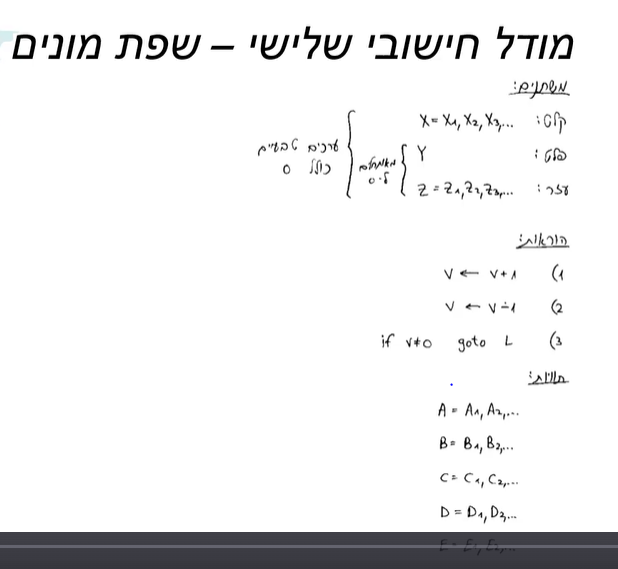 מודל חישובי שלישי – שפת מונים
משתנים:
קלט: X = X1, X2, X3,...
פלט: Y
עזר: Z = Z1, Z2, Z3,...
מאותחלים ל-0
ערכים טבעיים כולל 0
הוראות:
1) V ← V+1
2) V ← V∸1
3) if V≠0 goto L
תוויות:
A = A1, A2,...
B = B1, B2,...
C = C1, C2,...
D = D1, D2,...
E = E1, E2,...